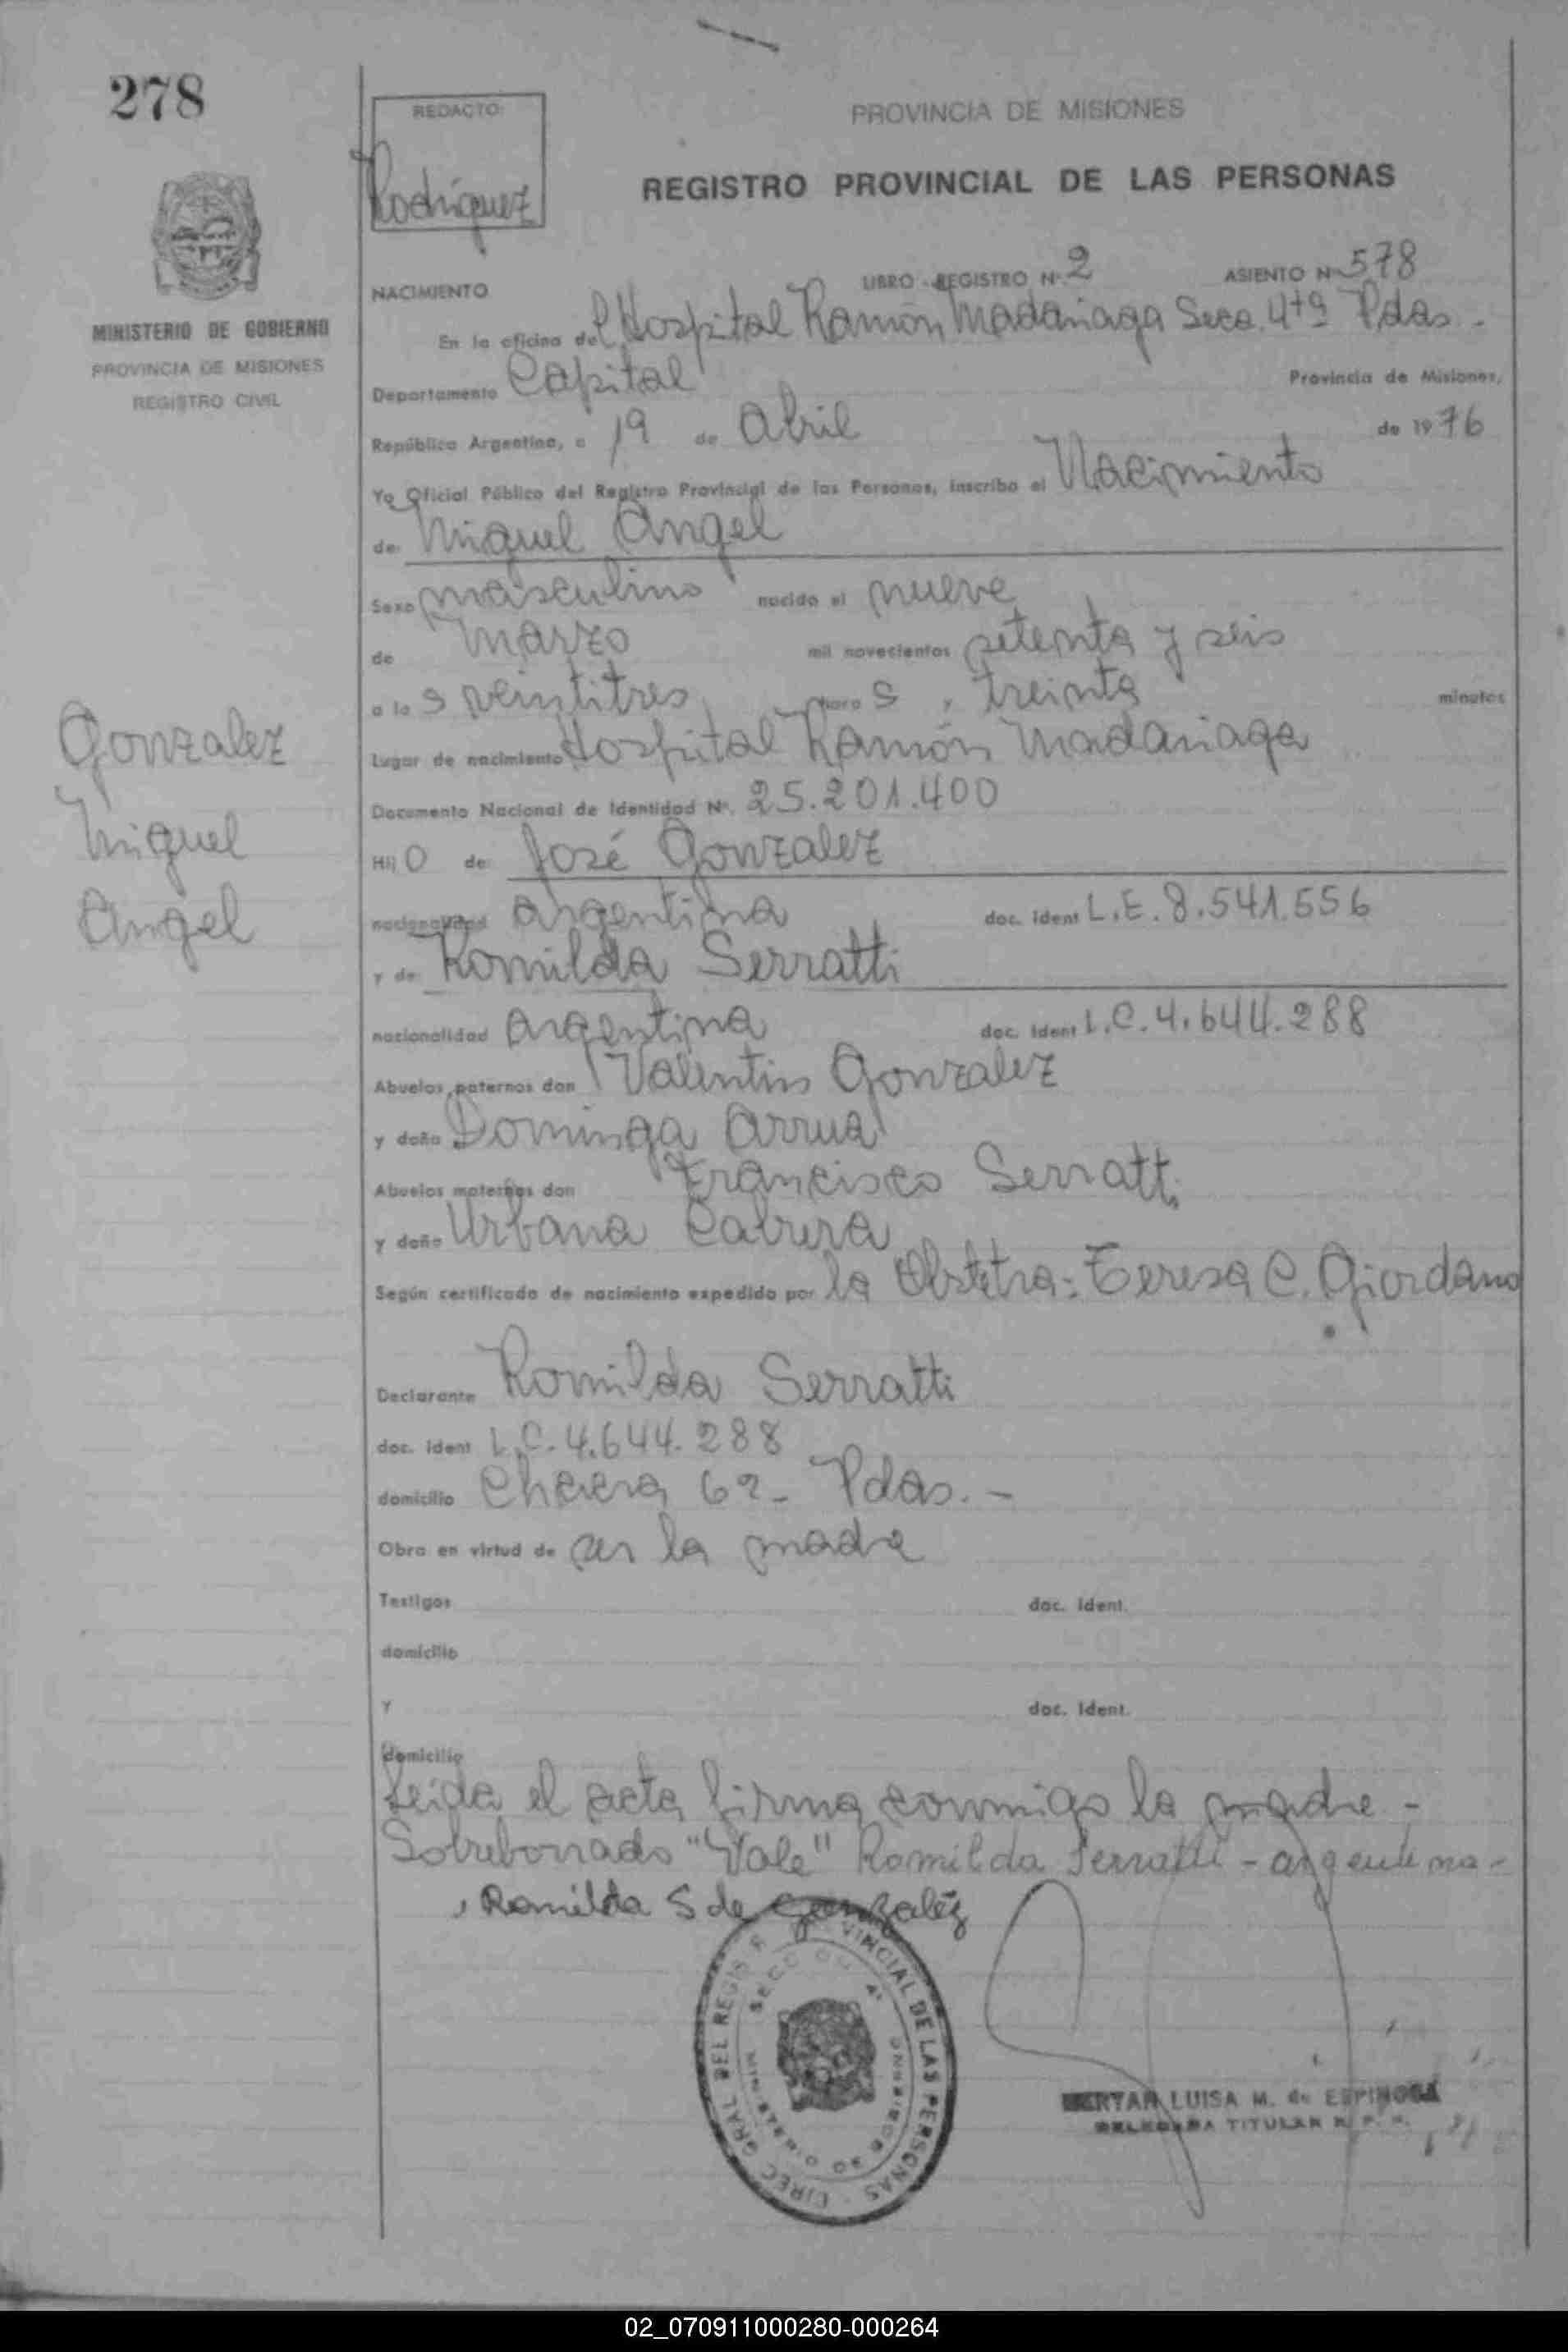 278
REDACTO:
Rodríguez
PROVINCIA DE MISIONES
REGISTRO PROVINCIAL DE LAS PERSONAS
MINISTERIO DE GOBIERNO
PROVINCIA DE MISIONES
REGISTRO CIVIL
NACIMIENTO LIBRO - REGISTRO Nº 2 ASIENTO Nº 578
En la oficina del Hospital Ramón Madariaga Secc. 4ta Pdas.-
Departamento Capital Provincia de Misiones,
República Argentina, a 19 de Abril de 1976
Yo Oficial Público del Registro Provincial de las Personas, inscribo el Nacimiento
de: Miguel Angel
Sexo masculino nacido el nueve
de Marzo mil novecientos setenta y seis
a las veintitres horas, treinta minutos
Lugar de nacimiento Hospital Ramón Madariaga
Documento Nacional de Identidad Nº. 25.201.400
Hijo de: José Gonzalez
nacionalidad argentina doc. ident L.E. 8.541.556
y de: Romilda Serratti
nacionalidad Argentina doc. ident L.C. 4.644.288
Abuelos paternos don Valentin Gonzalez
y doña Dominga Arrua
Abuelos maternos don Francisco Serratti
y doña Urbana Cabrera
Según certificado de nacimiento expedido por la Obstetra: Teresa C. Giordano
Gonzalez
Miguel
Angel
Declarante Romilda Serratti
doc. ident L.C. 4.644.288
domicilio Chacra 62- Pdas.-
Obra en virtud de ser la madre
Testigos doc. ident.
domicilio
Y doc. ident.
domicilio
Leida el acta, firma conmigo la madre -
Sobreborrado "Vale" Romilda Serratti - argentina -
Romilda S de Gonzaléz
DIREC GRAL DEL REGIS PROVINCIAL DE LAS PERSONAS
LUISA M. de ESPINOSA
DELEGADA TITULAR R. P. P.
02_070911000280-000264